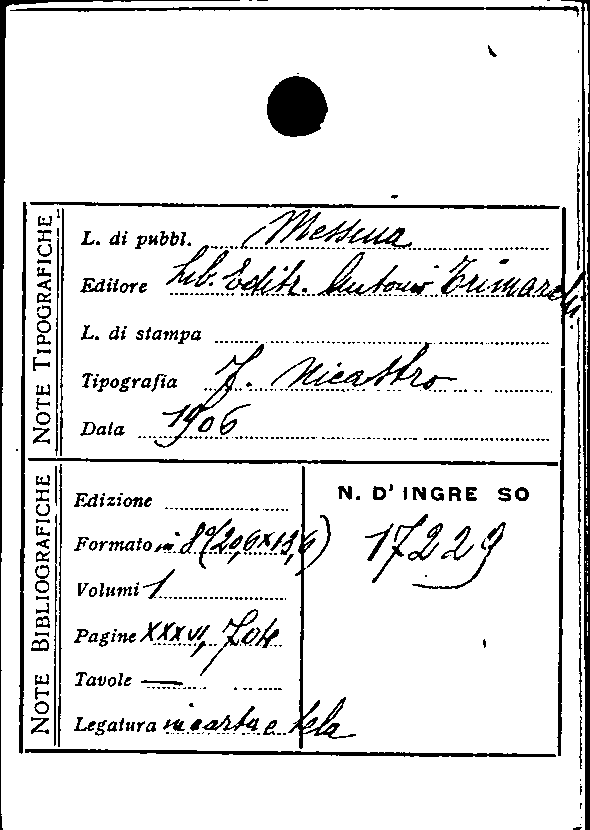 NOTE TIPOGRAFICHE
L. di pubbl. Messina
Editore Lib. Editr. Antonio Trimarchi.
L. di stampa
Tipografia F. Nicastro
Data 1906
NOTE BIBLIOGRAFICHE
Edizione
Formato in 8º (20,6x13,6)
Volumi 1
Pagine XXXVI,
Tavole —
Legatura in carta e tela
N. D' INGRE SO
17229